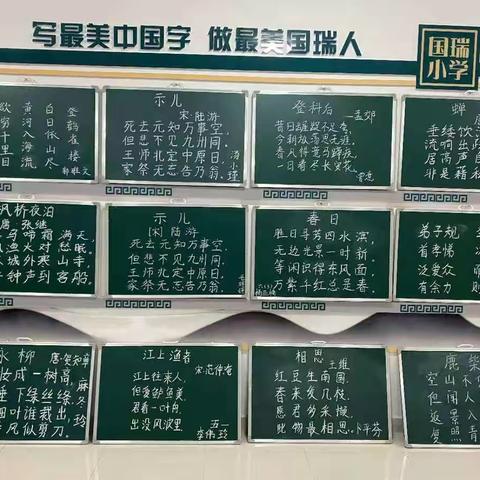 写最美中国字 做最美国瑞人
国瑞
小学
登鹳雀楼
白日依山尽
黄河入海流
欲穷
示儿
宋·陆游
死去元知万事空,
但悲不见九州同。
王师北定中原日,
家祭无忘告乃翁。
登科后
孟郊
昔日龌龊不足夸,
今朝放荡思无涯。
春风得意马蹄疾,
一日看尽长安花。
蝉
垂緌饮
流响出
居高声
非是藉
枫桥夜泊
唐 张继
乌啼霜满天,
渔火对愁眠。
城外寒山寺,
钟声到客船。
示儿
[宋] 陆游
死去元知万事空,
但悲不见九州同。
王师北定中原日,
家祭无忘告乃翁。
春日
胜日寻芳泗水滨,
无边光景一时新。
等闲识得东风面,
万紫千红总是春。
弟子规
首孝悌
泛爱众
有余力
咏柳
唐·贺知章
妆成一树高,
垂下绿丝绦。
细叶谁裁出,
春风似剪刀。
江上渔者
宋 范仲淹
江上往来人,
但爱鲈鱼美。
君看一叶舟,
出没风波里
五一
李伟玲
相思
王维
红豆生南国,
春来发几枝。
愿君多采撷,
此物最相思。
卜平芬
鹿柴
空山不
但闻人
返景入
复照青